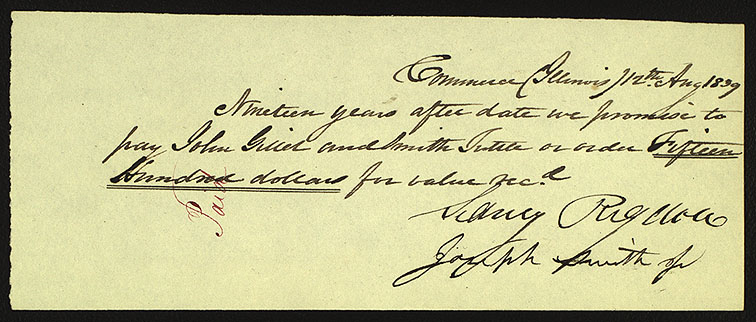 Commerce (Illinois) 12th Aug 1839
Nineteen years after date we promise to
pay John Gillet and Smith Tuttle or order Fifteen
Hundred dollars for value recd
Paid
Sidney Rigdon
Joseph Smith Jr